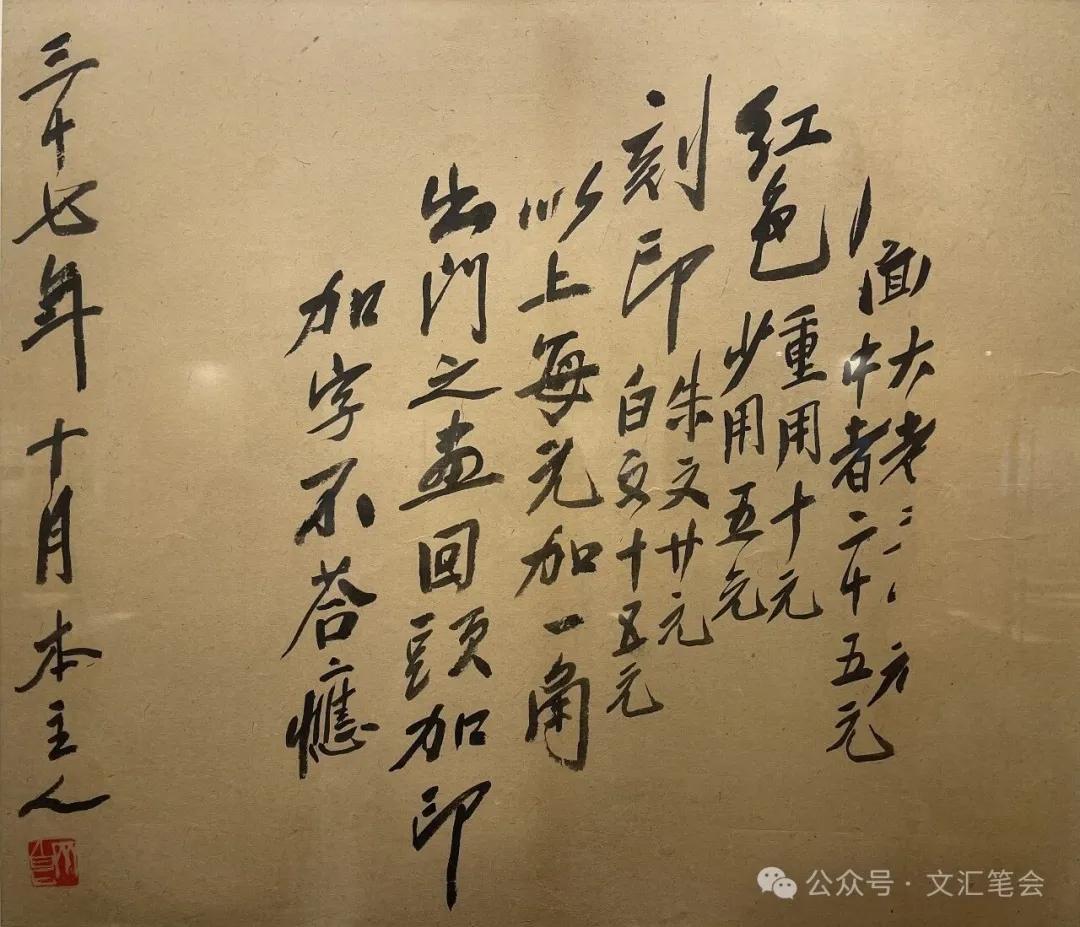 面大者
中者二十五元
红色重用十元
少用五元
刻印朱文廿元
白文十五元
以上每元加一角
出門之畫回頭加印
加字不荅應
三十七年十月本主人
公众号·文汇笔会